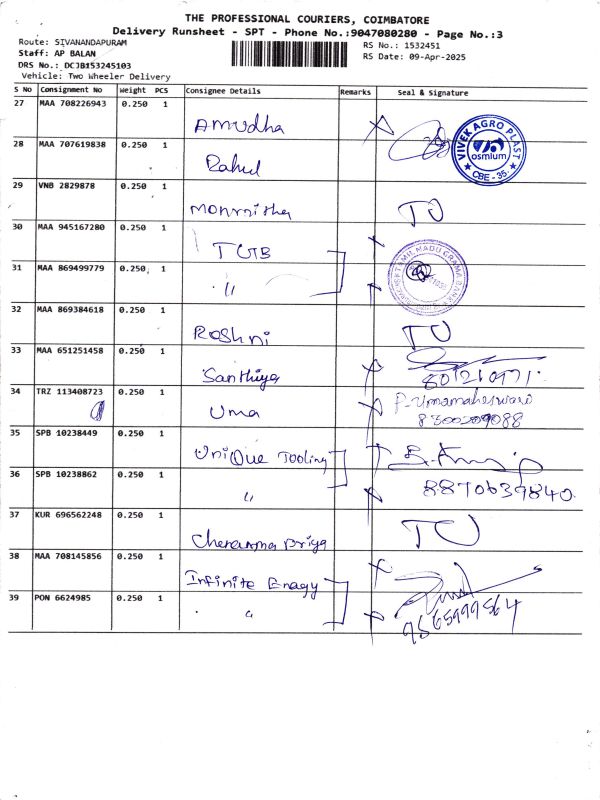 THE PROFESSIONAL COURIERS, COIMBATORE
Delivery Runsheet - SPT - Phone No.:9047080280 - Page No.:3
Route: SIVANANDAPURAM
RS No.: 1532451
Staff: AP BALAN
RS Date: 09-Apr-2025
DRS No.: DCJB153245103
Vehicle: Two Wheeler Delivery
S No Consignment No Weight PCS Consignee Details Remarks Seal & Signature
27 MAA 708226943 0.250 1 Amudha
VIVEK AGRO PLAST
osmium
★ CBE - 35. ★
28 MAA 707619838 0.250 1 Rahul
29 VNB 2829878 0.250 1 TU
30 MAA 945167280 0.250 1 TGB
31 MAA 869499779 0.250 1 "
TAMIL NADU GRAMA
32 MAA 869384618 0.250 1 Roshni TU
33 MAA 651251458 0.250 1 Santhiya
34 TRZ 113408723 0.250 1 Uma P. Umamaheswari
35 SPB 10238449 0.250 1 UniQue Tooling
36 SPB 10238862 0.250 1 " 8870639840.
37 KUR 696562248 0.250 1 TU
38 MAA 708145856 0.250 1 Infinite Enagy
39 PON 6624985 0.250 1 " 9565999564